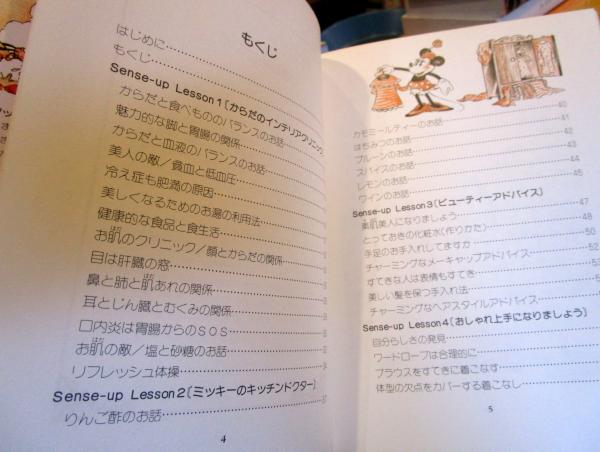 もくじ
はじめに
もくじ
Sense-up Lesson1〔からだのインテリアクリニック
からだと食べもののバランスのお話
魅力的な脚と胃腸の関係
からだと血液のバランスのお話
美人の敵/貧血と低血圧
冷え症も肥満の原因
美しくなるためのお湯の利用法
健康的な食品と食生活
お肌のクリニック/顔とからだの関係
目は肝臓の窓
鼻と肺と肌あれの関係
耳とじん臓とむくみの関係
口内炎は胃腸からのSOS
お肌の敵/塩と砂糖のお話
リフレッシュ体操
Sense-up Lesson2〔ミッキーのキッチンドクター〕
りんご酢のお話
4
カモミールティーのお話 40
はちみつのお話 41
プルーンのお話 42
スパイスのお話 43
レモンのお話 44
ワインのお話 45
Sense-up Lesson3〔ビューティーアドバイス〕
素肌美人になりましょう 47
とっておきの化粧水(作りかた) 48
手足のお手入れしてますか 50
チャーミングなメーキャップアドバイス 52
すてきな人は表情もすてき
美しい髪を保つ手入れ法
チャーミングなヘアスタイルアドバイス
Sense-up Lesson4〔おしゃれ上手になりましょう〕
自分らしさの発見
ワードローブは合理的に
ブラウスをすてきに着こなす
体型の欠点をカバーする着こなし
5